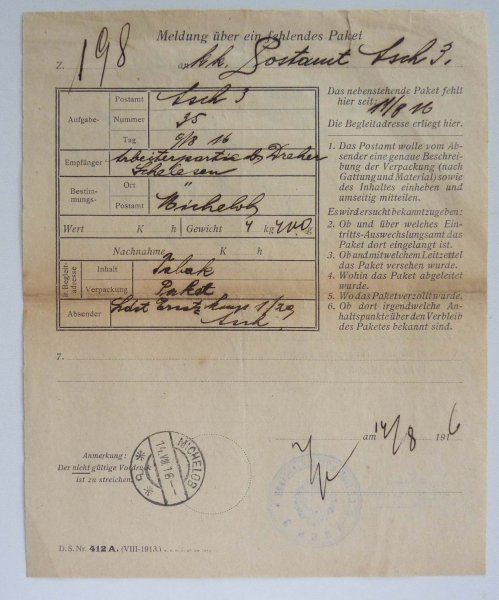 Meldung über ein fehlendes Paket
Z. 198 an k.k. Postamt Asch 3.
Aufgabe-
Postamt
Asch 3
Nummer
35
Tag
9/8 16
Empfänger
Arbeiterpartie Dreher
Bestim-
mungs-
Ort
"
Postamt
Michelob
Wert K h Gewicht 4 kg 400 g
Nachnahme K h
lt. Begleit-
adresse
Inhalt
Tabak
Verpackung
Paket
Absender
Ldst 1/29
Asch
Das nebenstehende Paket fehlt
hier seit: 14/8 16
Die Begleitadresse erliegt hier.
1. Das Postamt wolle vom Ab-
sender eine genaue Beschrei-
bung der Verpackung (nach
Gattung und Material) sowie
des Inhaltes einheben und
umseitig mitteilen.
Es wird ersucht bekanntzugeben:
2. Ob und über welches Ein-
tritts-Auswechslungsamt das
Paket dort eingelangt ist.
3. Ob und mit welchem Leitzettel
das Paket versehen wurde.
4. Wohin das Paket abgeleitet
wurde.
5. Wo das Paket verzollt wurde.
6. Ob dort irgendwelche An-
haltspunkte über den Verbleib
des Paketes bekannt sind.
7.
am 14/8 1916
MICHELOB
14.VIII.16
* b *
Anmerkung:
Der nicht gültige Vordruck
ist zu streichen.
D. S. Nr. 412 A. (VIII-1913.)